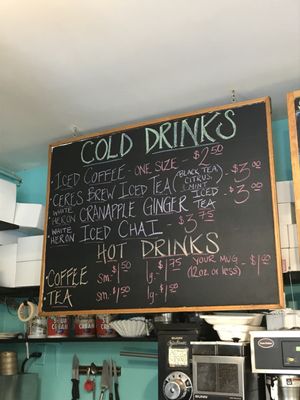 COLD DRINKS
· ICED COFFEE - ONE SIZE - $2.50
· CERES BREW ICED TEA (BLACK TEA) CITRUS MINT - $3.00
· WHITE HERON CRANAPPLE GINGER ICED TEA - $3.00
· WHITE HERON ICED CHAI - $3.75
HOT DRINKS
· COFFEE SM. $1.50 lg. - $1.75 YOUR MUG - $1.00
(12oz or less)
· TEA SM. $1.50 lg. - $1.50
BUNN
BUNN